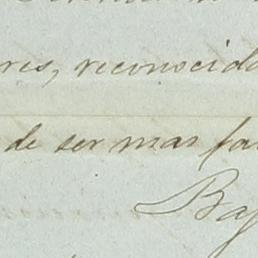 res, reconocid
de ser mas fa
Baj